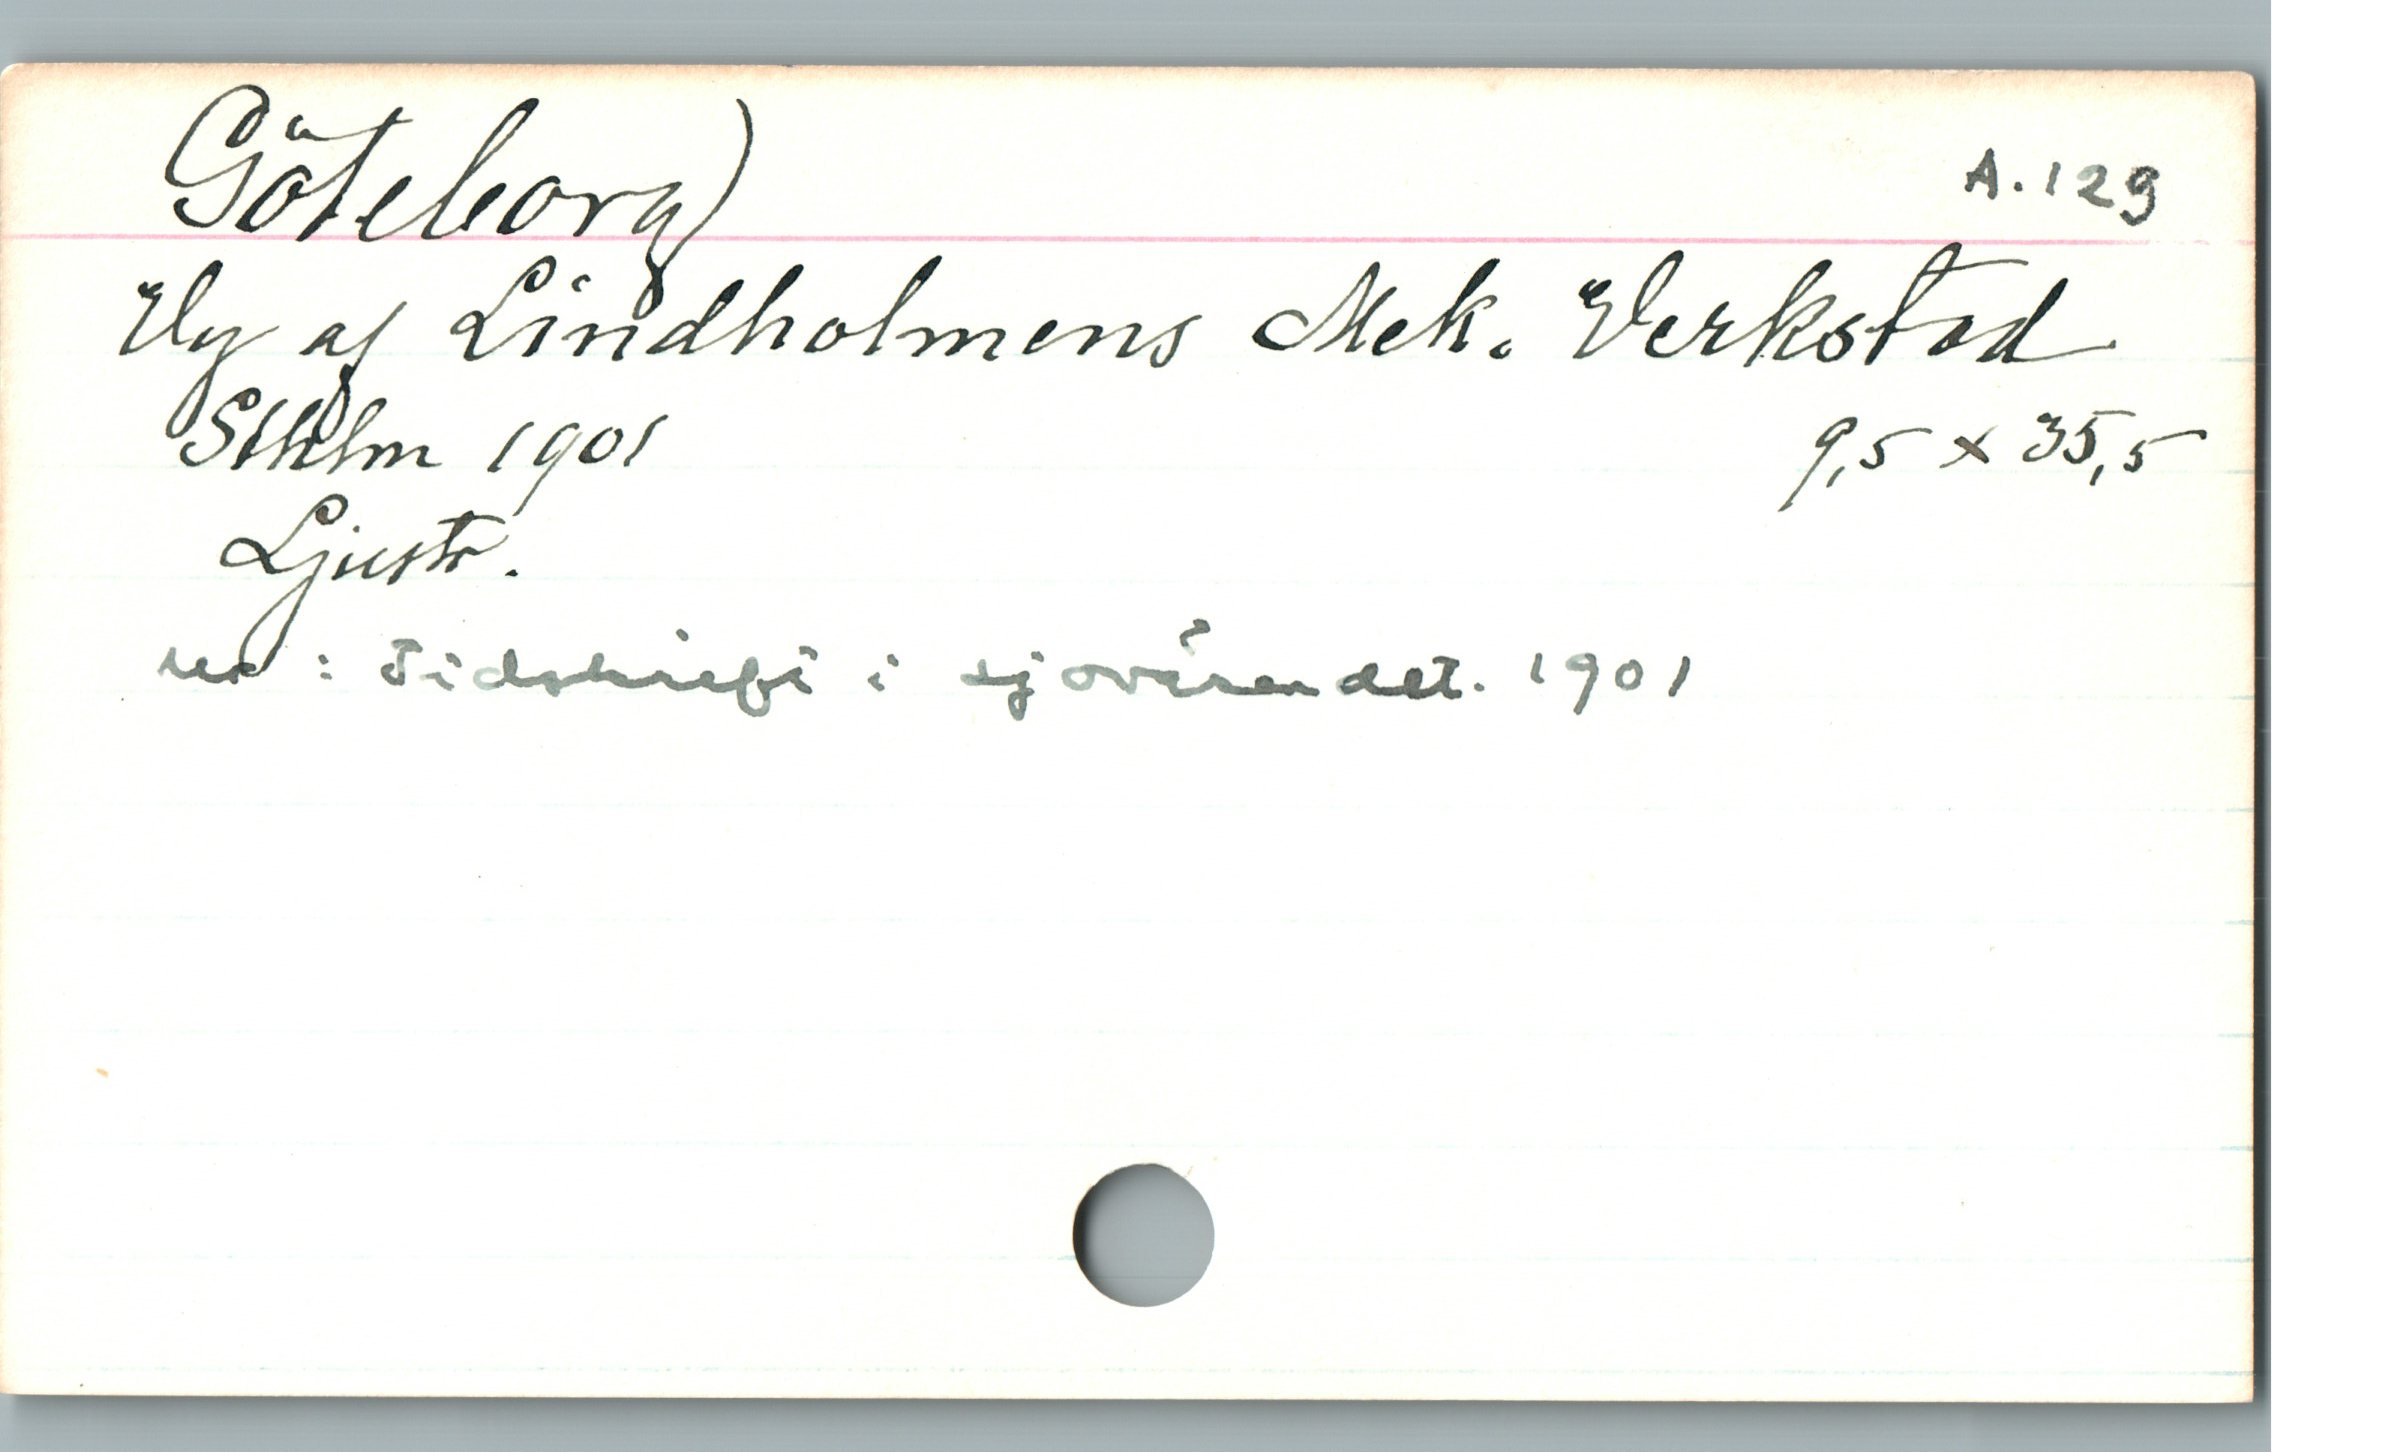 Göteborg)
A.129
Vy af Lindholmens Mek. Verkstad
Sthlm 1901
9,5 x 35,5
Ljustr.
ur : Tidskrift i sjöväsendet. 1901